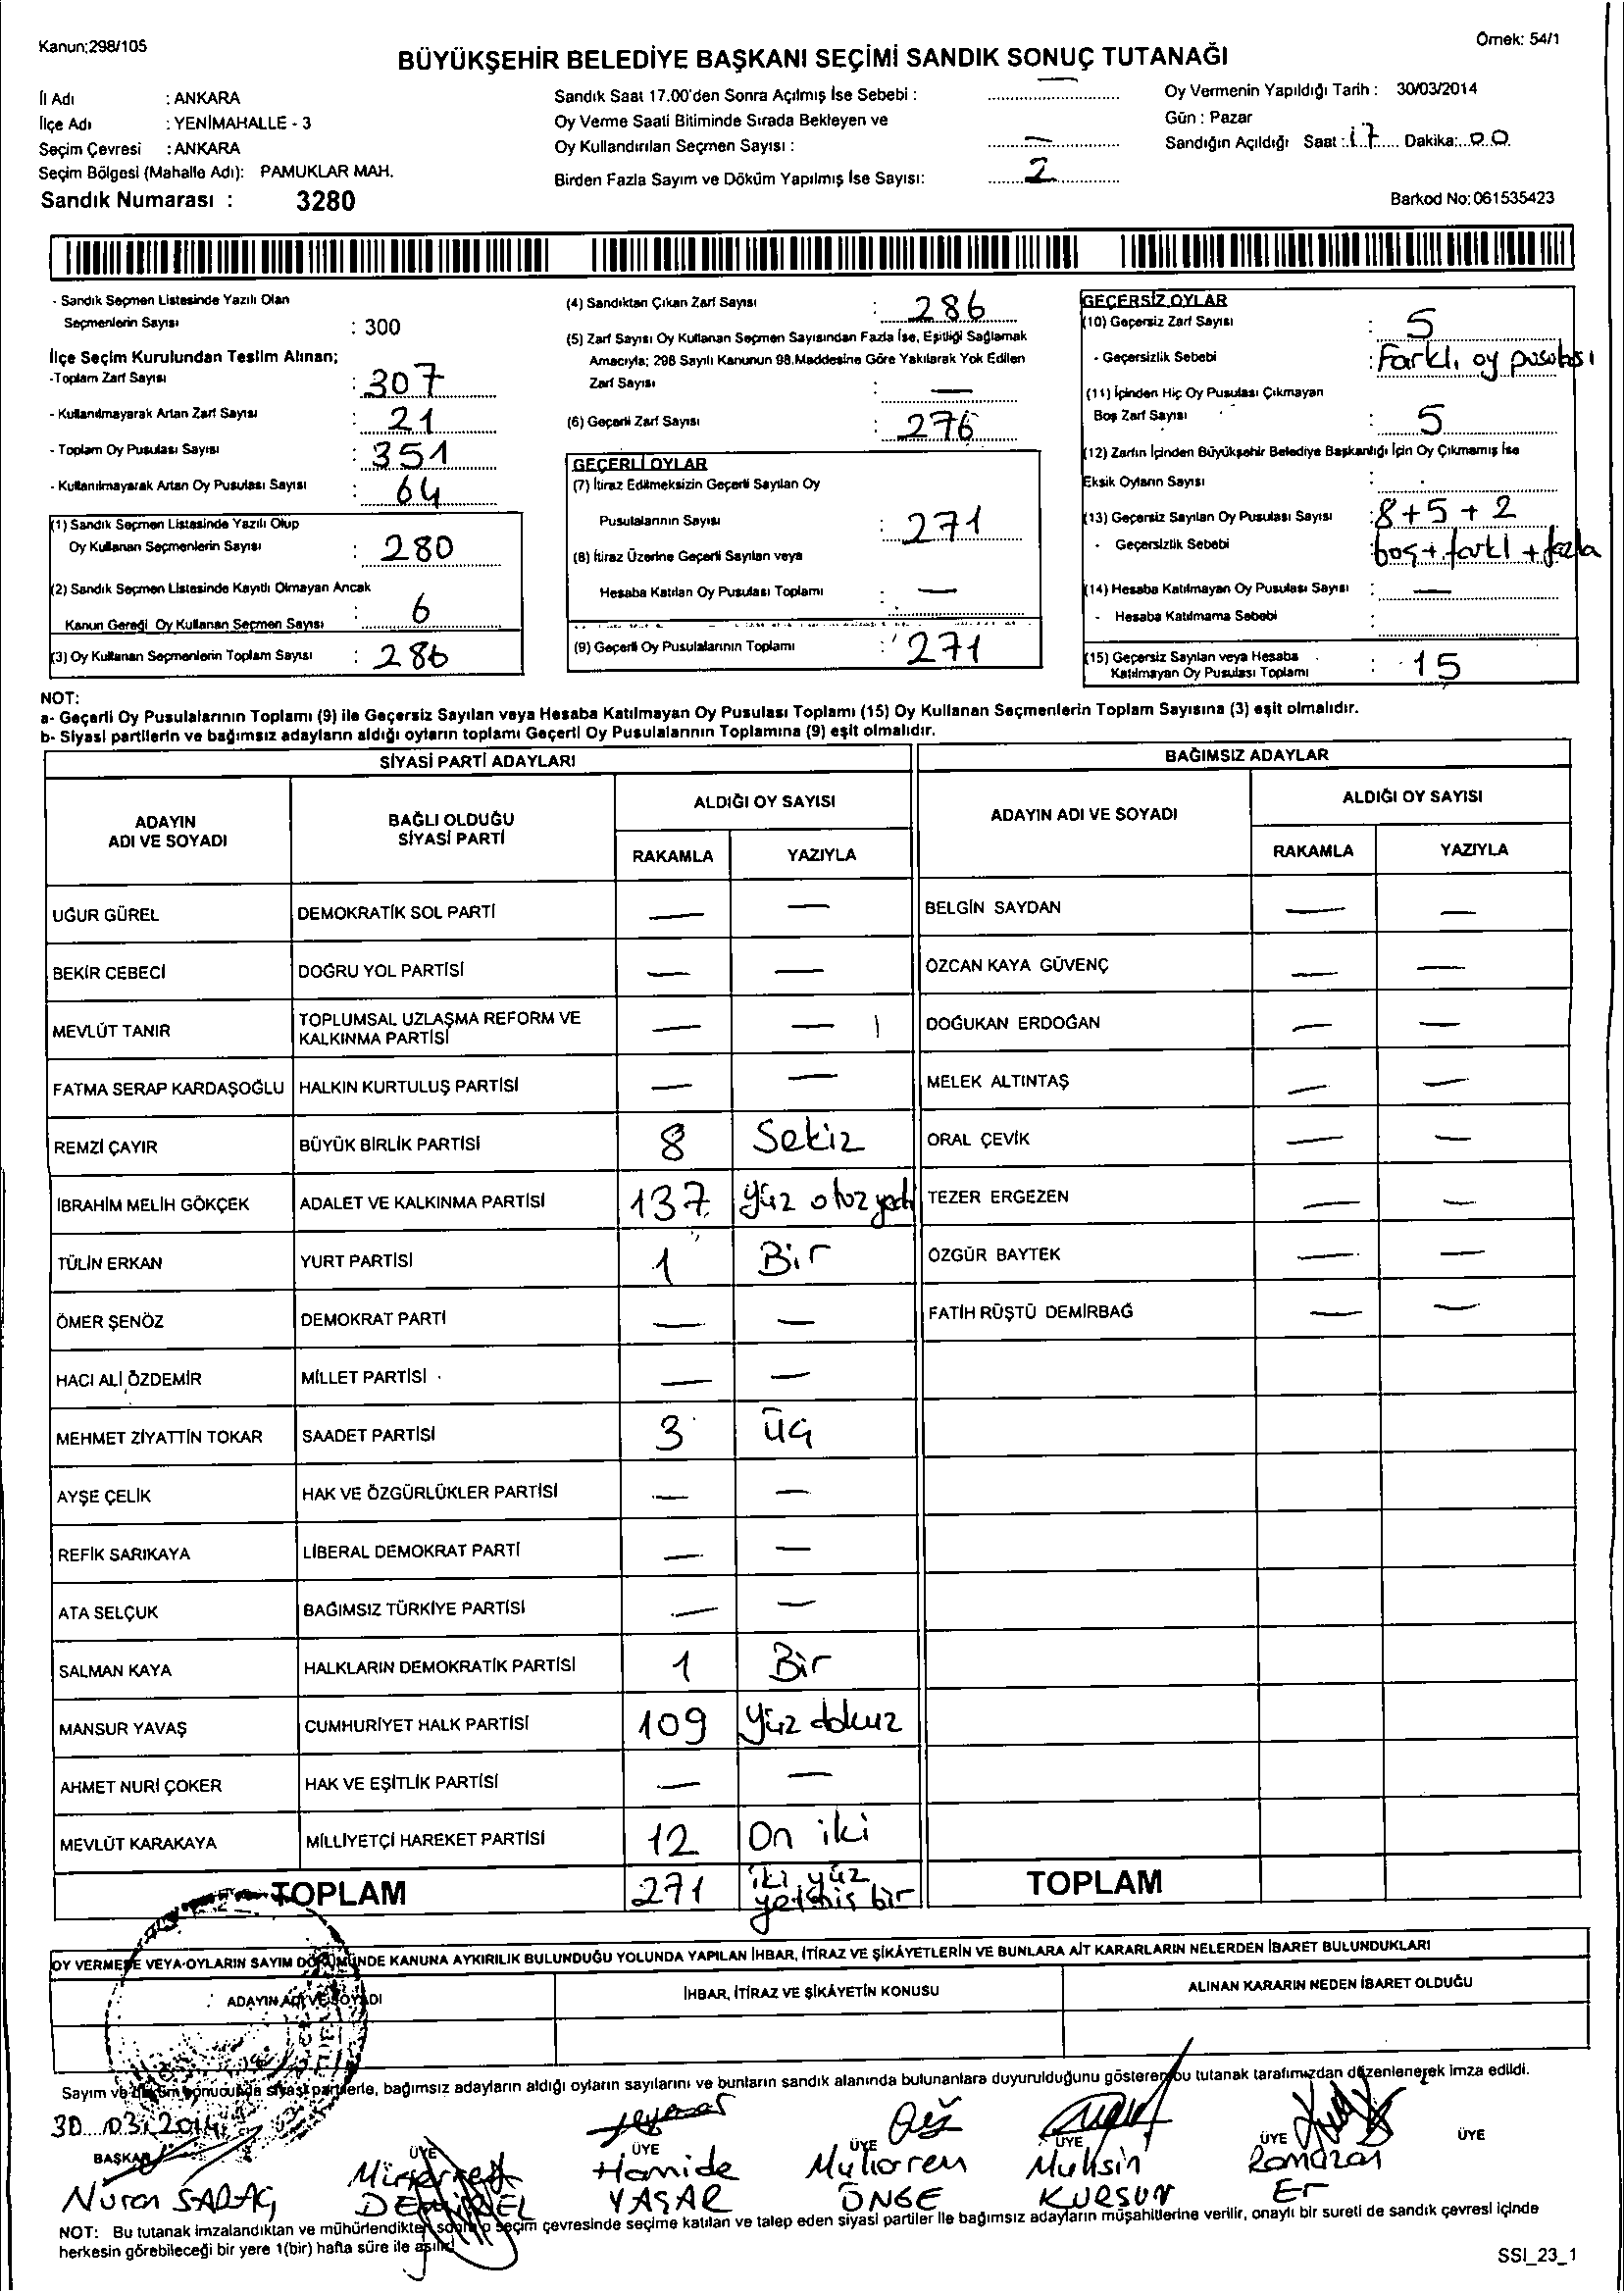 Kanun:298/105
Örnek: 54/1
BÜYÜKŞEHİR BELEDİYE BAŞKANI SEÇİMİ SANDIK SONUÇ TUTANAĞI
İl Adı : ANKARA
İlçe Adı : YENİMAHALLE - 3
Seçim Çevresi : ANKARA
Seçim Bölgesi (Mahalle Adı): PAMUKLAR MAH.
Sandık Numarası : 3280
Sandık Saat 17.00'den Sonra Açılmış İse Sebebi : —
Oy Verme Saati Bitiminde Sırada Bekleyen ve
Oy Kullandırılan Seçmen Sayısı : —
Birden Fazla Sayım ve Döküm Yapılmış İse Sayısı: 2
Oy Vermenin Yapıldığı Tarih : 30/03/2014
Gün : Pazar
Sandığın Açıldığı Saat : 17 Dakika: 00
Barkod No: 061535423
- Sandık Seçmen Listesinde Yazılı Olan
Seçmenlerin Sayısı : 300
İlçe Seçim Kurulundan Teslim Alınan;
-Toplam Zarf Sayısı : 307
- Kullanılmayarak Artan Zarf Sayısı : 21
- Toplam Oy Pusulası Sayısı : 351
- Kullanılmayarak Artan Oy Pusulası Sayısı : 64
(1) Sandık Seçmen Listesinde Yazılı Olup
Oy Kullanan Seçmenlerin Sayısı : 280
(2) Sandık Seçmen Listesinde Kayıtlı Olmayan Ancak
Kanun Gereği Oy Kullanan Seçmen Sayısı : 6
(3) Oy Kullanan Seçmenlerin Toplam Sayısı : 286
(4) Sandıktan Çıkan Zarf Sayısı : 286
(5) Zarf Sayısı Oy Kullanan Seçmen Sayısından Fazla İse, Eşitliği Sağlamak
Amacıyla; 298 Sayılı Kanunun 98.Maddesine Göre Yakılarak Yok Edilen
Zarf Sayısı : —
(6) Geçerli Zarf Sayısı : 276
GEÇERLİ OYLAR
(7) İtiraz Edilmeksizin Geçerli Sayılan Oy
Pusulalarının Sayısı : 271
(8) İtiraz Üzerine Geçerli Sayılan veya
Hesaba Katılan Oy Pusulası Toplamı : —
(9) Geçerli Oy Pusulalarının Toplamı : 271
GEÇERSİZ OYLAR
(10) Geçersiz Zarf Sayısı : 5
- Geçersizlik Sebebi : Farklı oy pusulası
(11) İçinden Hiç Oy Pusulası Çıkmayan
Boş Zarf Sayısı : 5
(12) Zarfın İçinden Büyükşehir Belediye Başkanlığı İçin Oy Çıkmamış İse
Eksik Oyların Sayısı :
(13) Geçersiz Sayılan Oy Pusulası Sayısı : 8+5+2
- Geçersizlik Sebebi : boş+farklı+fazla
(14) Hesaba Katılmayan Oy Pusulası Sayısı : —
- Hesaba Katılmama Sebebi :
(15) Geçersiz Sayılan veya Hesaba
Katılmayan Oy Pusulası Toplamı : 15
NOT:
a- Geçerli Oy Pusulalarının Toplamı (9) ile Geçersiz Sayılan veya Hesaba Katılmayan Oy Pusulası Toplamı (15) Oy Kullanan Seçmenlerin Toplam Sayısına (3) eşit olmalıdır.
b- Siyasi partilerin ve bağımsız adayların aldığı oyların toplamı Geçerli Oy Pusulalarının Toplamına (9) eşit olmalıdır.
SİYASİ PARTİ ADAYLARI
ADAYIN ADI VE SOYADI BAĞLI OLDUĞU SİYASİ PARTİ ALDIĞI OY SAYISI
RAKAMLA YAZIYLA
UĞUR GÜREL DEMOKRATİK SOL PARTİ — —
BEKİR CEBECİ DOĞRU YOL PARTİSİ — —
MEVLÜT TANIR TOPLUMSAL UZLAŞMA REFORM VE KALKINMA PARTİSİ — —
FATMA SERAP KARDAŞOĞLU HALKIN KURTULUŞ PARTİSİ — —
REMZİ ÇAYIR BÜYÜK BİRLİK PARTİSİ 8 Sekiz
İBRAHİM MELİH GÖKÇEK ADALET VE KALKINMA PARTİSİ 137 yüz otuz yedi
TÜLİN ERKAN YURT PARTİSİ 1 Bir
ÖMER ŞENÖZ DEMOKRAT PARTİ — —
HACI ALİ ÖZDEMİR MİLLET PARTİSİ — —
MEHMET ZİYATTİN TOKAR SAADET PARTİSİ 3 üç
AYŞE ÇELİK HAK VE ÖZGÜRLÜKLER PARTİSİ — —
REFİK SARIKAYA LİBERAL DEMOKRAT PARTİ — —
ATA SELÇUK BAĞIMSIZ TÜRKİYE PARTİSİ — —
SALMAN KAYA HALKLARIN DEMOKRATİK PARTİSİ 1 Bir
MANSUR YAVAŞ CUMHURİYET HALK PARTİSİ 109 yüz dokuz
AHMET NURİ ÇOKER HAK VE EŞİTLİK PARTİSİ — —
MEVLÜT KARAKAYA MİLLİYETÇİ HAREKET PARTİSİ 12 On iki
TOPLAM 271 iki yüz yetmiş bir
BAĞIMSIZ ADAYLAR
ADAYIN ADI VE SOYADI ALDIĞI OY SAYISI
RAKAMLA YAZIYLA
BELGİN SAYDAN — —
ÖZCAN KAYA GÜVENÇ — —
DOĞUKAN ERDOĞAN — —
MELEK ALTINTAŞ — —
ORAL ÇEVİK — —
TEZER ERGEZEN — —
ÖZGÜR BAYTEK — —
FATİH RÜŞTÜ DEMİRBAĞ — —
TOPLAM
OY VERMEDE VEYA OYLARIN SAYIM DÖKÜMÜNDE KANUNA AYKIRILIK BULUNDUĞU YOLUNDA YAPILAN İHBAR, İTİRAZ VE ŞİKÂYETLERİN VE BUNLARA AİT KARARLARIN NELERDEN İBARET BULUNDUKLARI
ADAYIN ADI VE SOYADI İHBAR, İTİRAZ VE ŞİKÂYETİN KONUSU ALINAN KARARIN NEDEN İBARET OLDUĞU
Sayım ve döküm sonucunda siyasi partilerle, bağımsız adayların aldığı oyların sayılarını ve bunların sandık alanında bulunanlara duyurulduğunu gösteren bu tutanak tarafımızdan düzenlenerek imza edildi.
30.03.2014
BAŞKAN ÜYE ÜYE ÜYE ÜYE ÜYE ÜYE
Nuran SARAÇ
DEMİREL
Hamide YAŞAR
Muharrem ÖNGE
Muhsin KURŞUN
Ramazan Er
NOT: Bu tutanak imzalandıktan ve mühürlendikten sonra o seçim çevresinde seçime katılan ve talep eden siyasi partiler ile bağımsız adayların müşahitlerine verilir, onaylı bir sureti de sandık çevresi içinde
herkesin görebileceği bir yere 1(bir) hafta süre ile asılır.
SSI_23_1